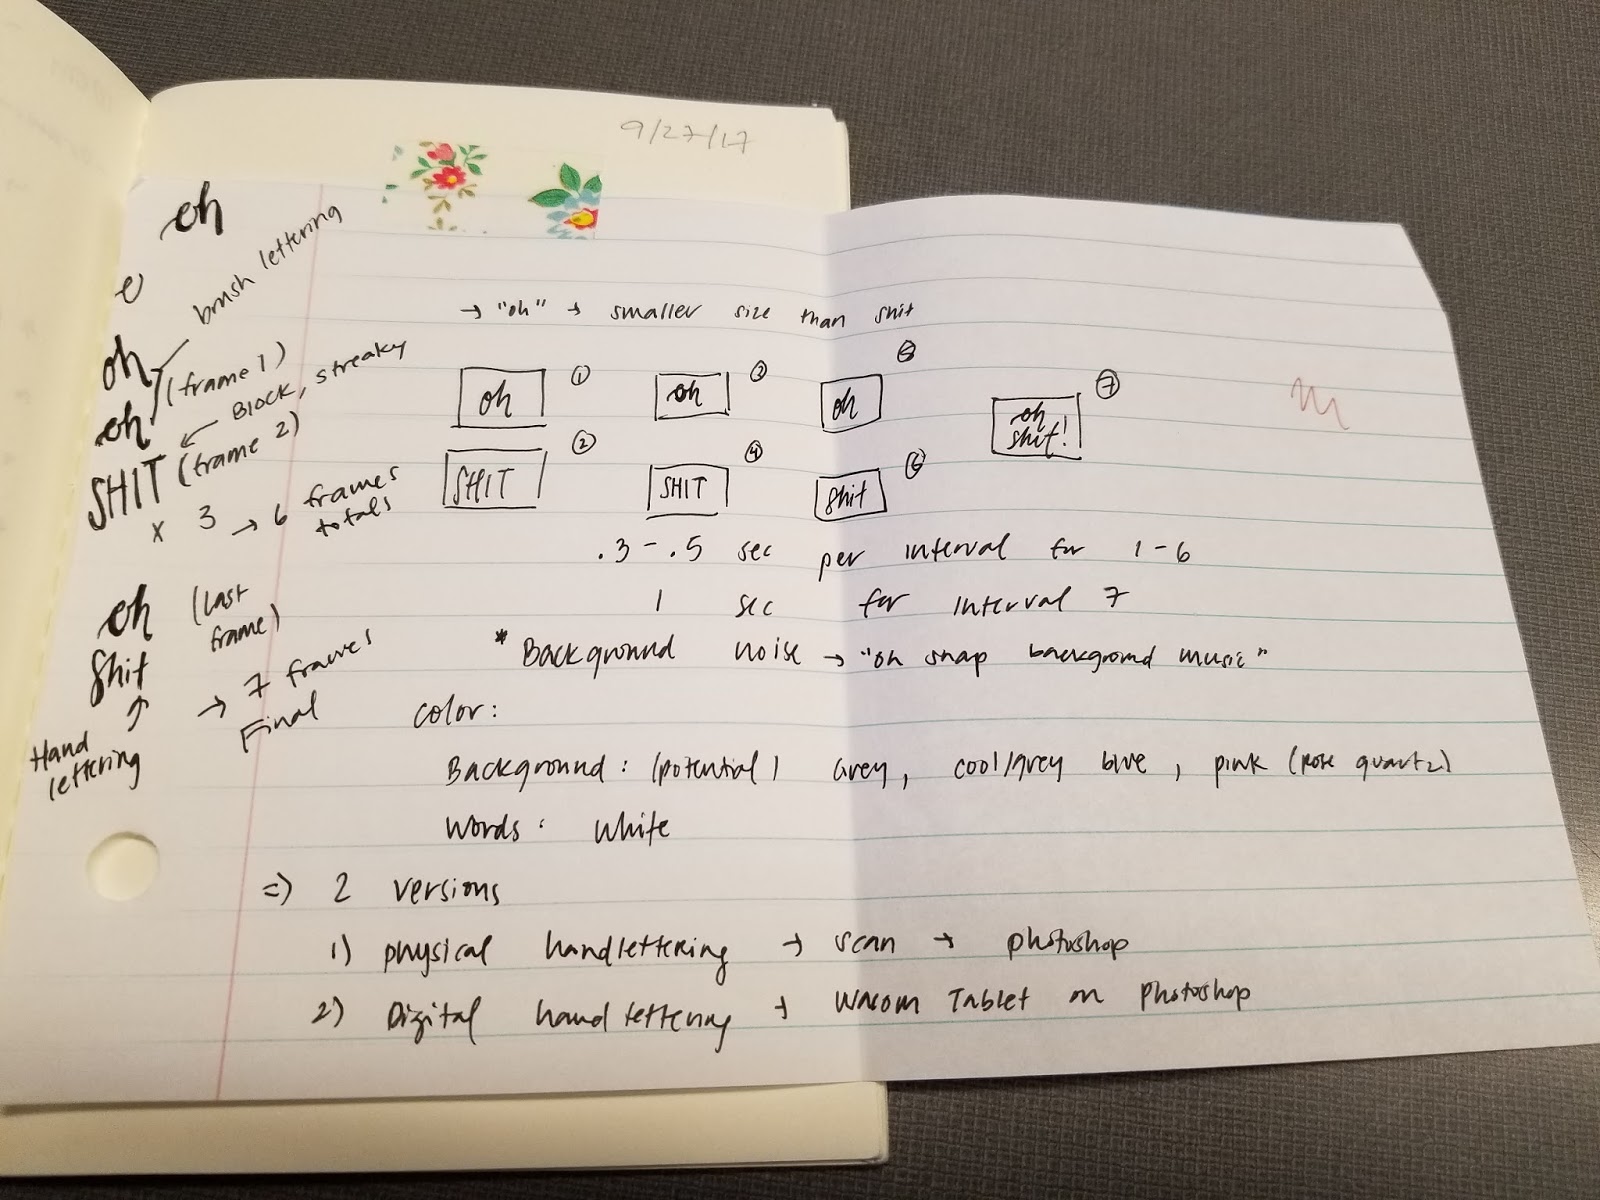 9/27/17
oh
e
brush lettering
oh
(frame 1)
oh
Block, streaky
SHIT (frame 2)
x 3 → 6 frames
totals
oh (last
frame)
shit
→ 7 frames
Final
Hand
lettering
→ "oh" → smaller size than shit
oh ① oh ③ oh ⑤ oh ⑦
shit!
SHIT ② SHIT ④ shit ⑥
.3 - .5 sec per interval for 1-6
1 sec for interval 7
* Background noise → "oh snap background music"
color:
Background: (potential) Grey, cool/grey blue, pink (rose quartz)
Words: White
=> 2 versions
1) physical handlettering → scan → photoshop
2) Digital hand lettering → Wacom Tablet on Photoshop